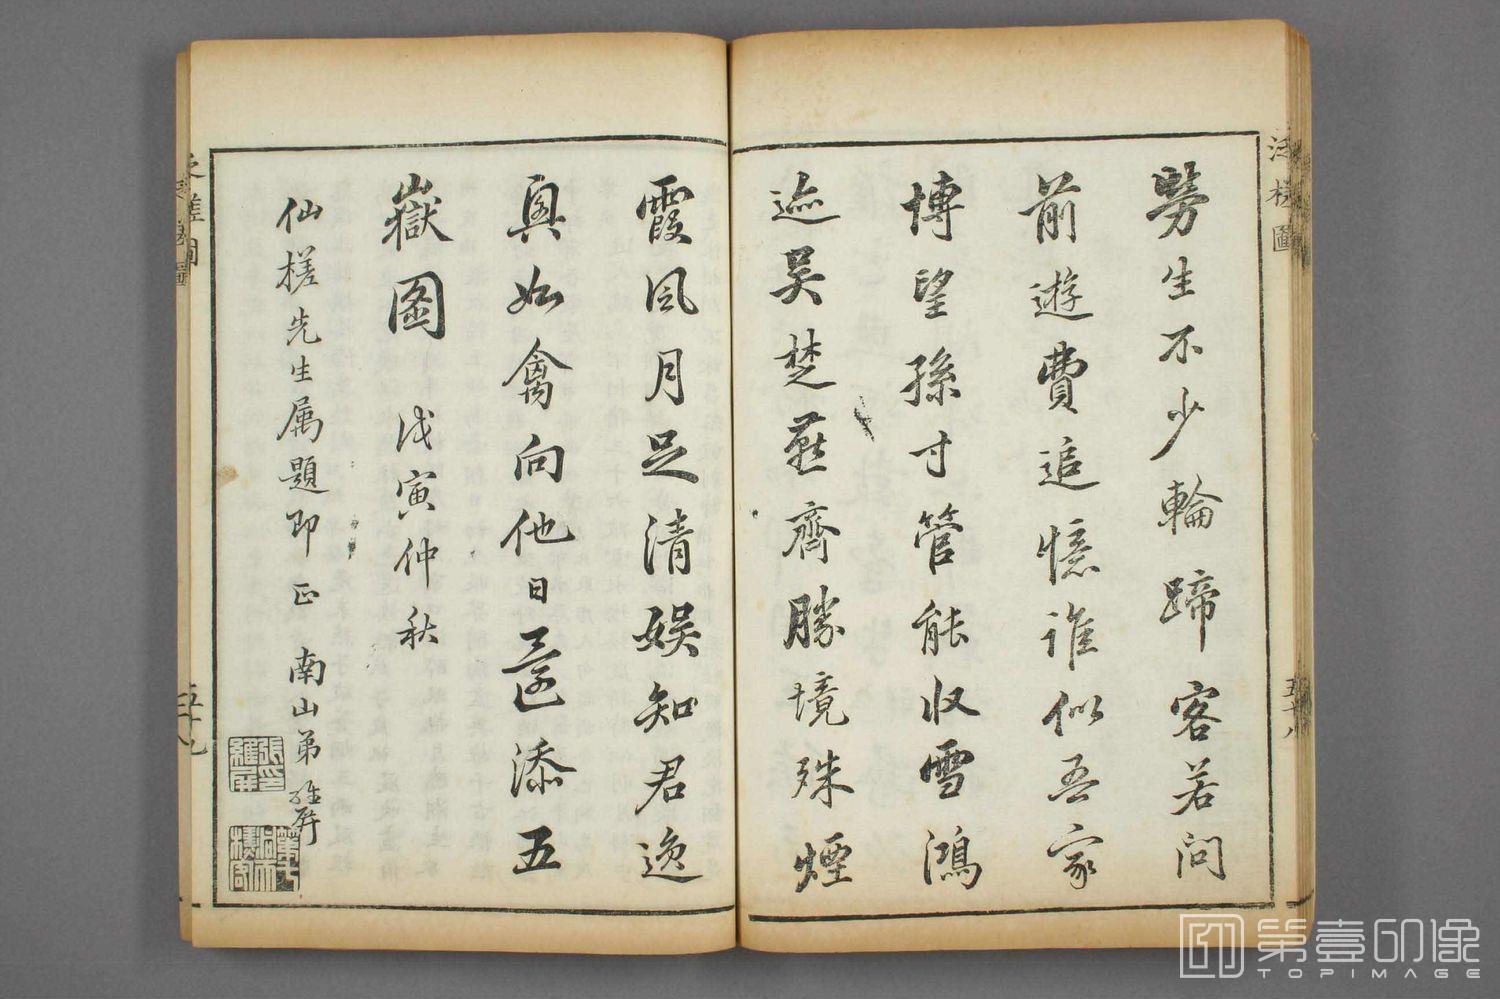 泛槎圖
五十八
勞生不少輪蹄客若問
前遊費追憶誰似吾家
博望孫寸管能收雪鴻
迹吳楚燕齊勝境殊煙
霞風月足清娛知君逸
興如禽向他日還添五
嶽圖 戊寅仲秋
仙槎先生属題即正 南山弟維屏
張印維屏
五十九
第壹印像
TOPIMAGE